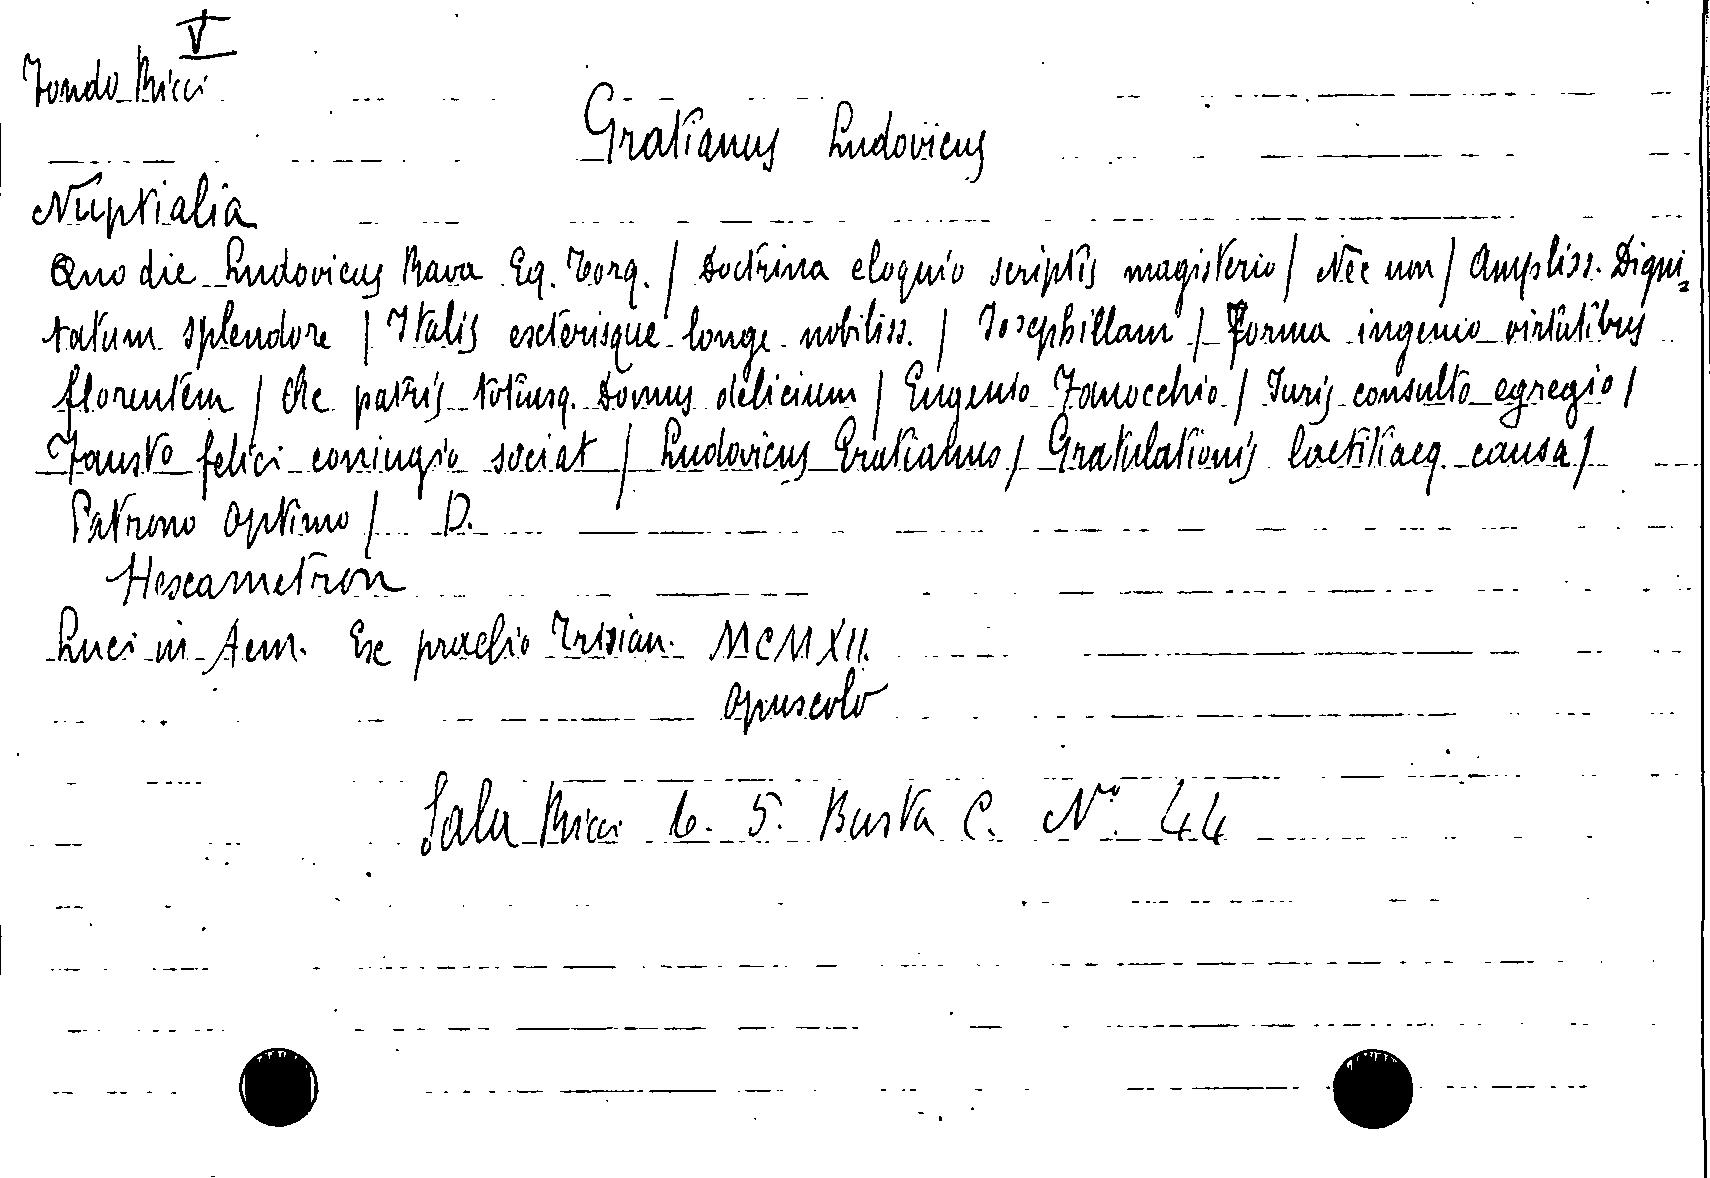 V
Fondo Ricci
Gratianus Ludovicus
Nuptialia
Quo die Ludovicus Rava Eq. Torq. / Doctrina eloquio scriptis magisterio / Nec non / Ampliss. Digni-
tatum splendore / Italis exterisque longe nobiliss. / Josephillam / Forma ingenio virtutibus
florentem / Ac patris totiusq. Domus delicium / Eugenio Fanocchio / Juris consulto egregio /
Fausto felici coniugio sociat / Ludovicus Gratianus / Gratulationis laetitiaeq. causa /
Patrono optimo / D.
Hexametron
Luci in Aem. Ex praelio Trisian. MCMXII.
opuscolo
Sala Ricci 6. 5. Busta C. N° 44